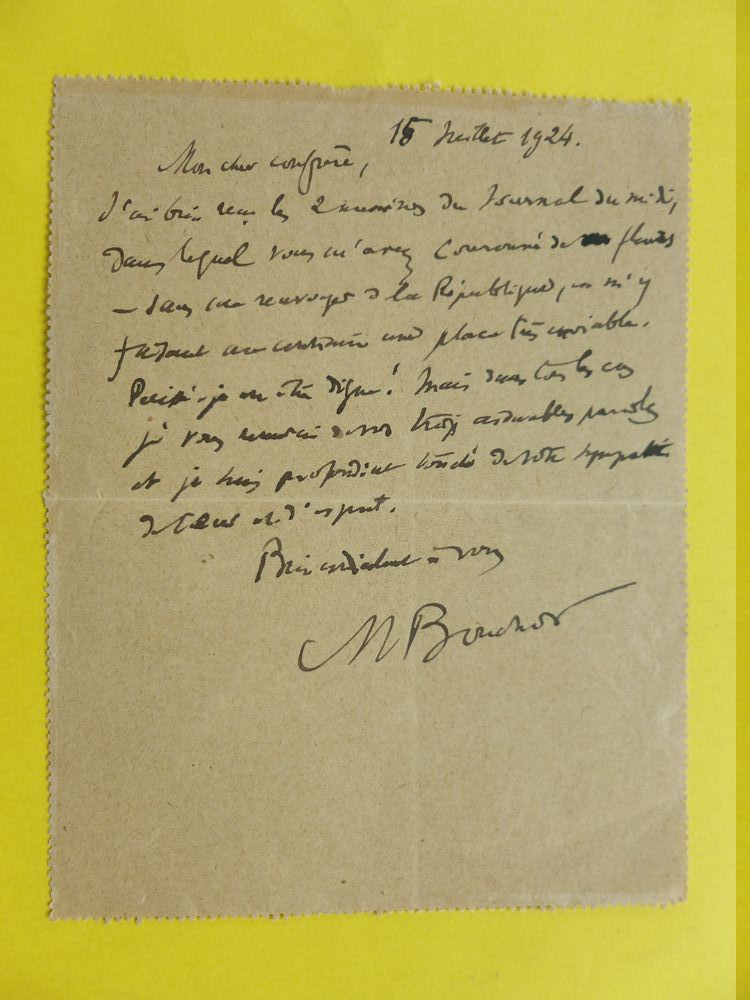 15 Juillet 1924.
Mon cher confrère,
J'ai bien reçu les 2 numéros du Journal du midi,
dans lequel vous m'avez couronné de fleurs
– dans une de la République, en m'y
une place très enviable.
Puissé-je en être digne! Mais dans tous les cas
je vous remercie de vos trop aimables paroles
et je suis profondément touché de votre sympathie
de cœur et d'esprit.
Bien cordialement à vous
M Bouchor